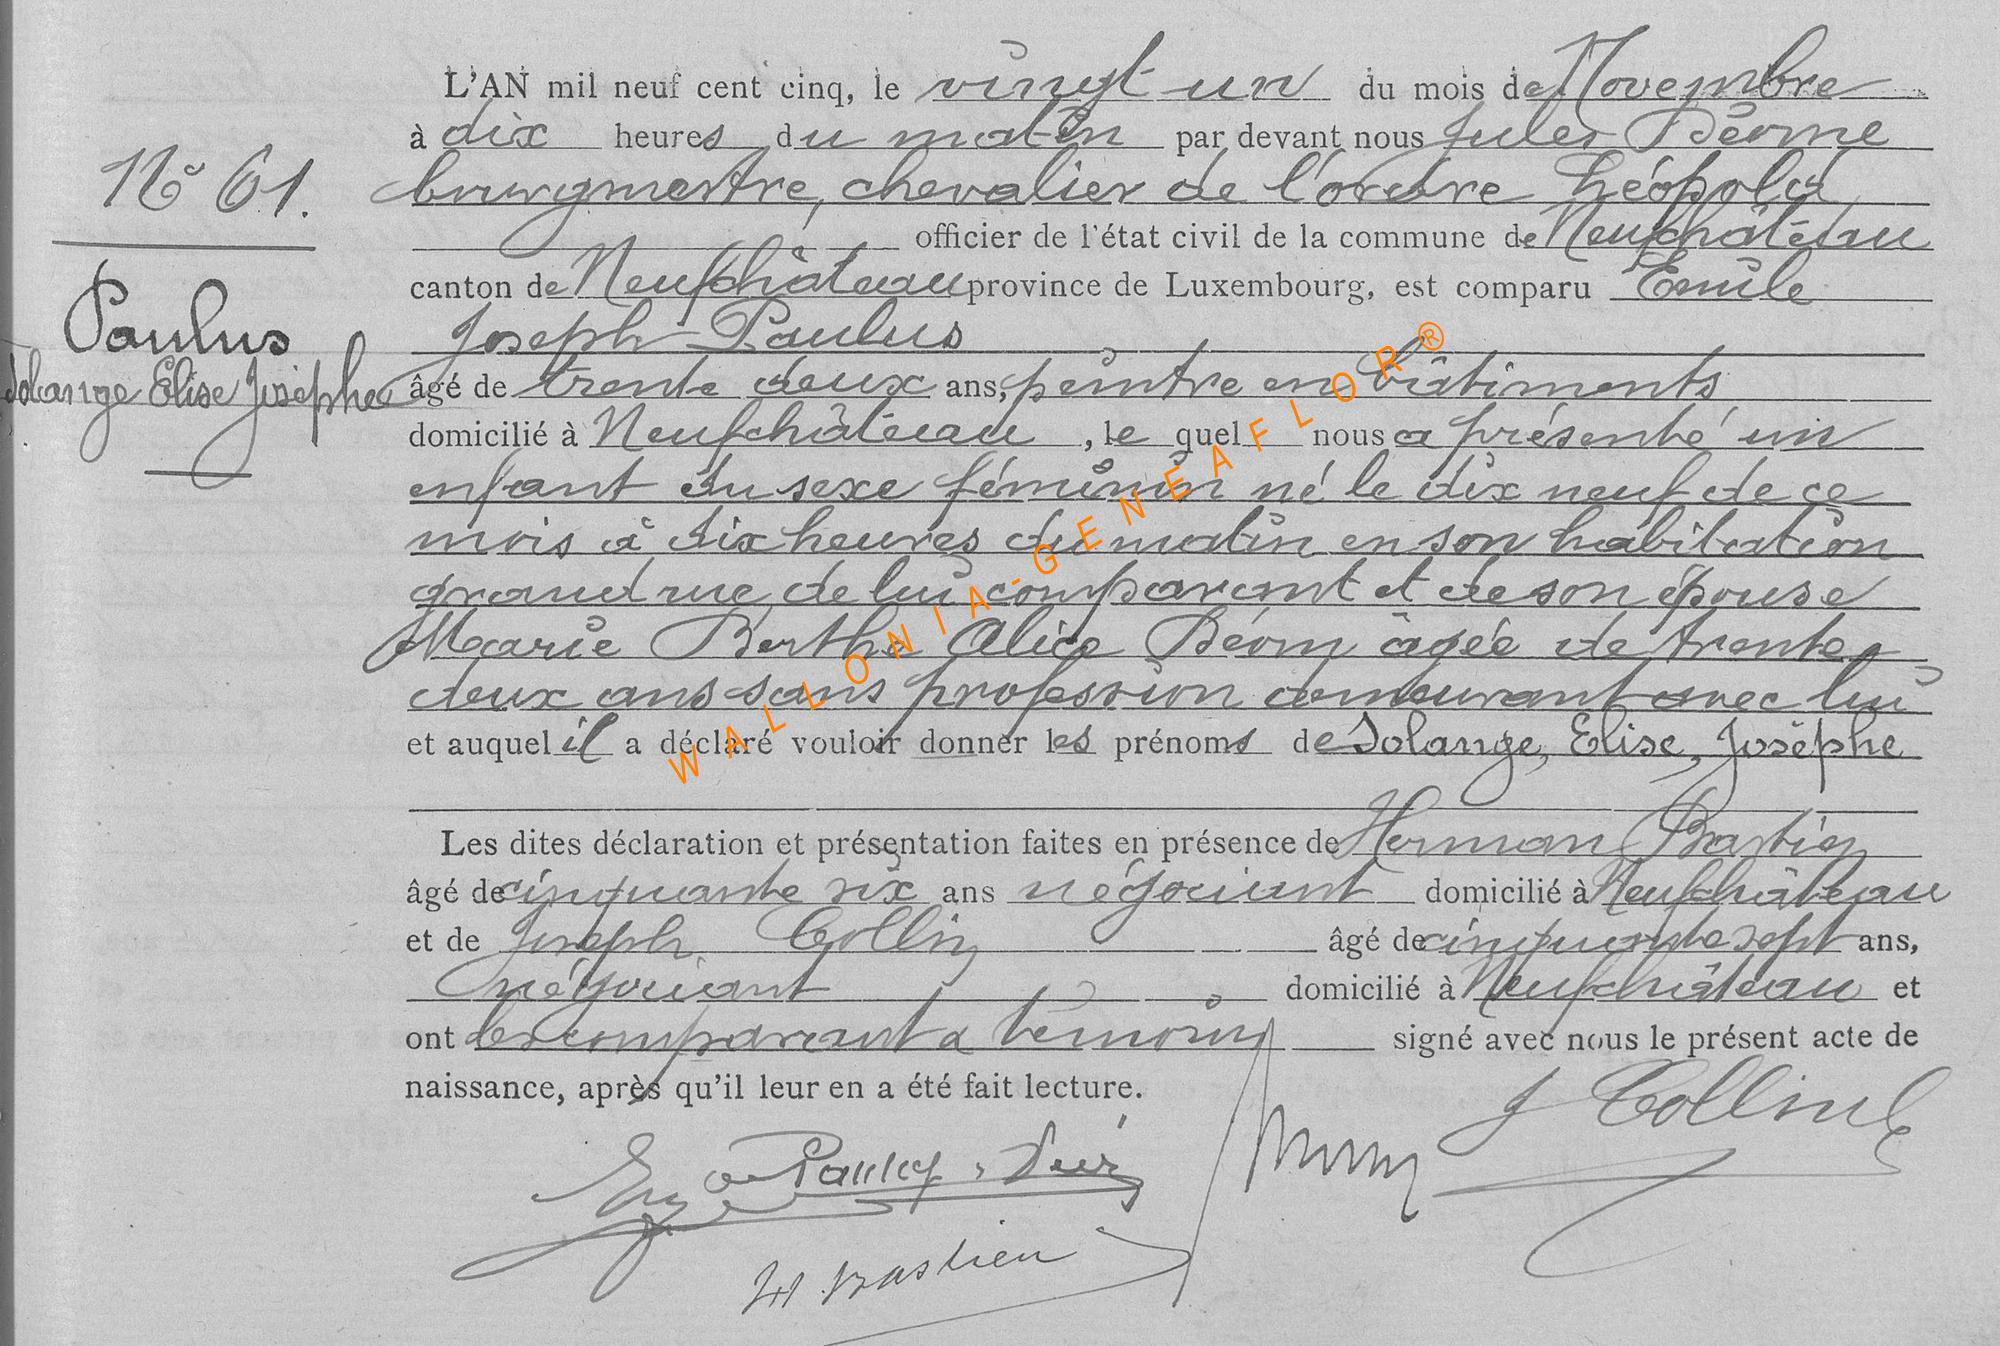 L'AN mil neuf cent cinq, le vingt un du mois de Novembre
à dix heures du matin par devant nous Jules
bourgmestre, chevalier de l'ordre Léopold
officier de l'état civil de la commune de Neufchâteau
canton de Neufchâteau province de Luxembourg, est comparu Emile
Joseph Paulus
âgé de trente deux ans, peintre en bâtiments
domicilié à Neufchâteau, le quel nous a présenté un
enfant du sexe féminin né le dix neuf de ce
mois à dix heures du matin en son habitation
grand rue, de lui comparant et de son épouse
Marie Berthe Alice âgée de trente
deux ans sans profession demeurant avec lui
et auquel il a déclaré vouloir donner les prénoms de Solange, Elise, Josèphe
Les dites déclaration et présentation faites en présence de Herman Bastien
âgé de cinquante six ans négociant domicilié à Neufchâteau
et de Joseph Collin âgé de cinquante sept ans,
négociant domicilié à Neufchâteau et
ont les comparant & témoins signé avec nous le présent acte de
naissance, après qu'il leur en a été fait lecture.
J Collin
H Bastien
N° 61.
Paulus
Solange Elise Josèphe
WALLONIA-GENEAFLOR®